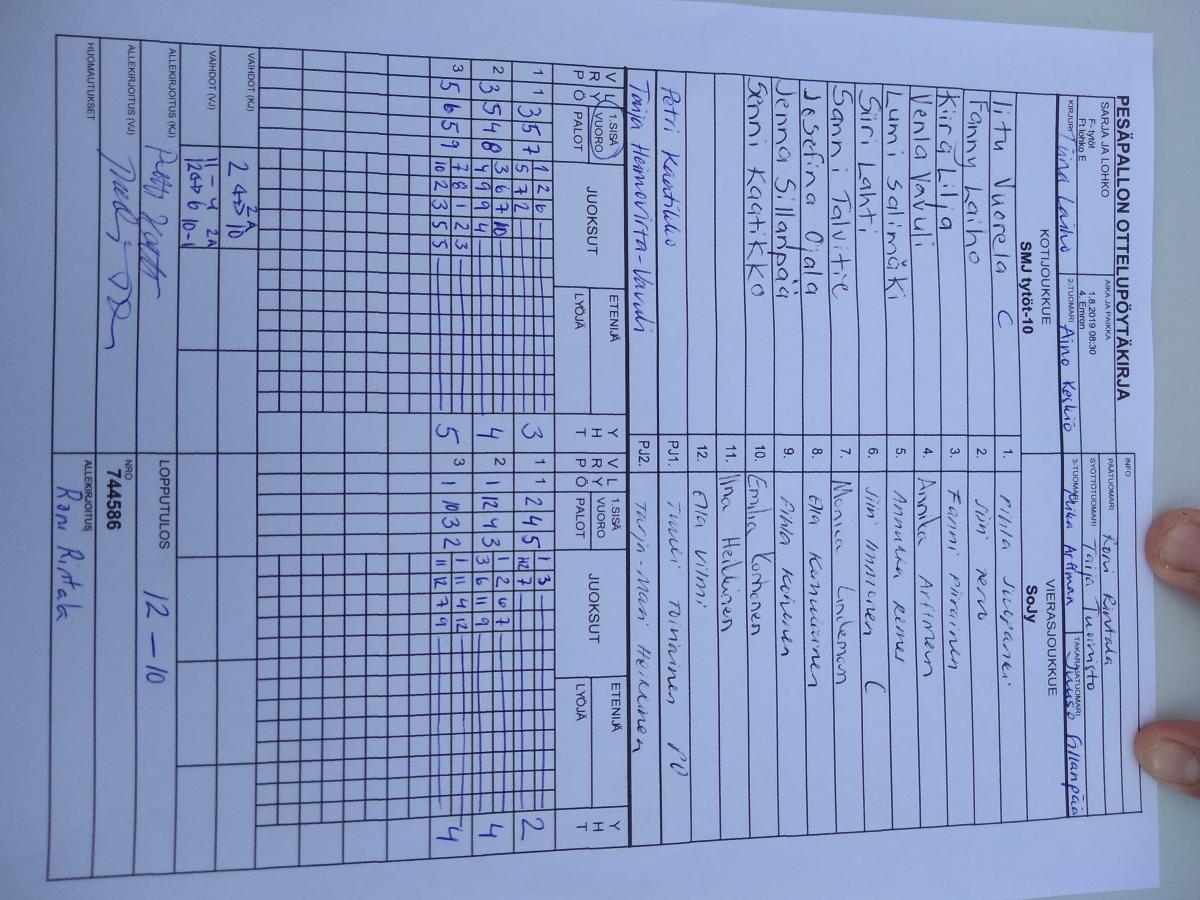 PESÄPALLON OTTELUPÖYTÄKIRJA
INFO
SARJA JA LOHKO
F- tytöt
F1 lohko E
AIKA JA PAIKKA
1.8.2019 08:30
4. Emron
PÄÄTUOMARI Roni Rintala
SYÖTTÖTUOMARI Tarja Tuomisto
KIRJURI Tiina Laiho
2-TUOMARI Aino Keskiö
3-TUOMARI Pirka Arffman
TAKARAJATUOMARI Juuso Sillanpää
KOTIJOUKKUE
SMJ tytöt-10
VIERASJOUKKUE
SoJy
Iitu Vuorela C
1.
Fanny Laiho
2.
Kira Lilja
3. Fanni Piirainen
Venla Vavuli
4. Annika Arffman
Lumi Salimäki
5. Annukka Kemer
Siiri Lahti
6. Siiri Immonen C
Sanni Talvitie
7. Monica Lindeman
Josefina Ojala
8. Ella
Jenna Sillanpää
9.
Senni Kaatikko
10. Emilia Korhonen
11. Iina Heikkinen
12. Ella Vilmi
Petri Kaatikko
PJ1. Tuuli Toivainen PO
Tanja Heimovirta-Vavuli
PJ2. Tarja-Mari Heikkinen
V R L Y P Ö 1.SISÄ VUORO PALOT JUOKSUT ETENIJÄ LYÖJÄ Y H T
V R L Y P Ö 1.SISÄ VUORO PALOT JUOKSUT ETENIJÄ LYÖJÄ Y H T
1 1 3 5 7 1 2 6 3
5 7 2
1 1 2 4 5 1 3 2
12 7
2 3 5 4 8 3 6 7 10 4
4 9 9 4
2 1 12 4 3 1 2 6 7 4
3 6 11 9
3 5 6 5 9 7 8 1 2 3 5
10 2 3 5 5
3 1 10 3 2 1 11 4 12 4
11 12 7 9
VAIHDOT (KJ)
2A
2 4↔10
VAIHDOT (VJ)
11-4 2A
12↔6 10-1
ALLEKIRJOITUS (KJ)
LOPPUTULOS 12 – 10
ALLEKIRJOITUS (VJ)
NRO
744586
HUOMAUTUKSET
ALLEKIRJOITUS
Roni Rintala